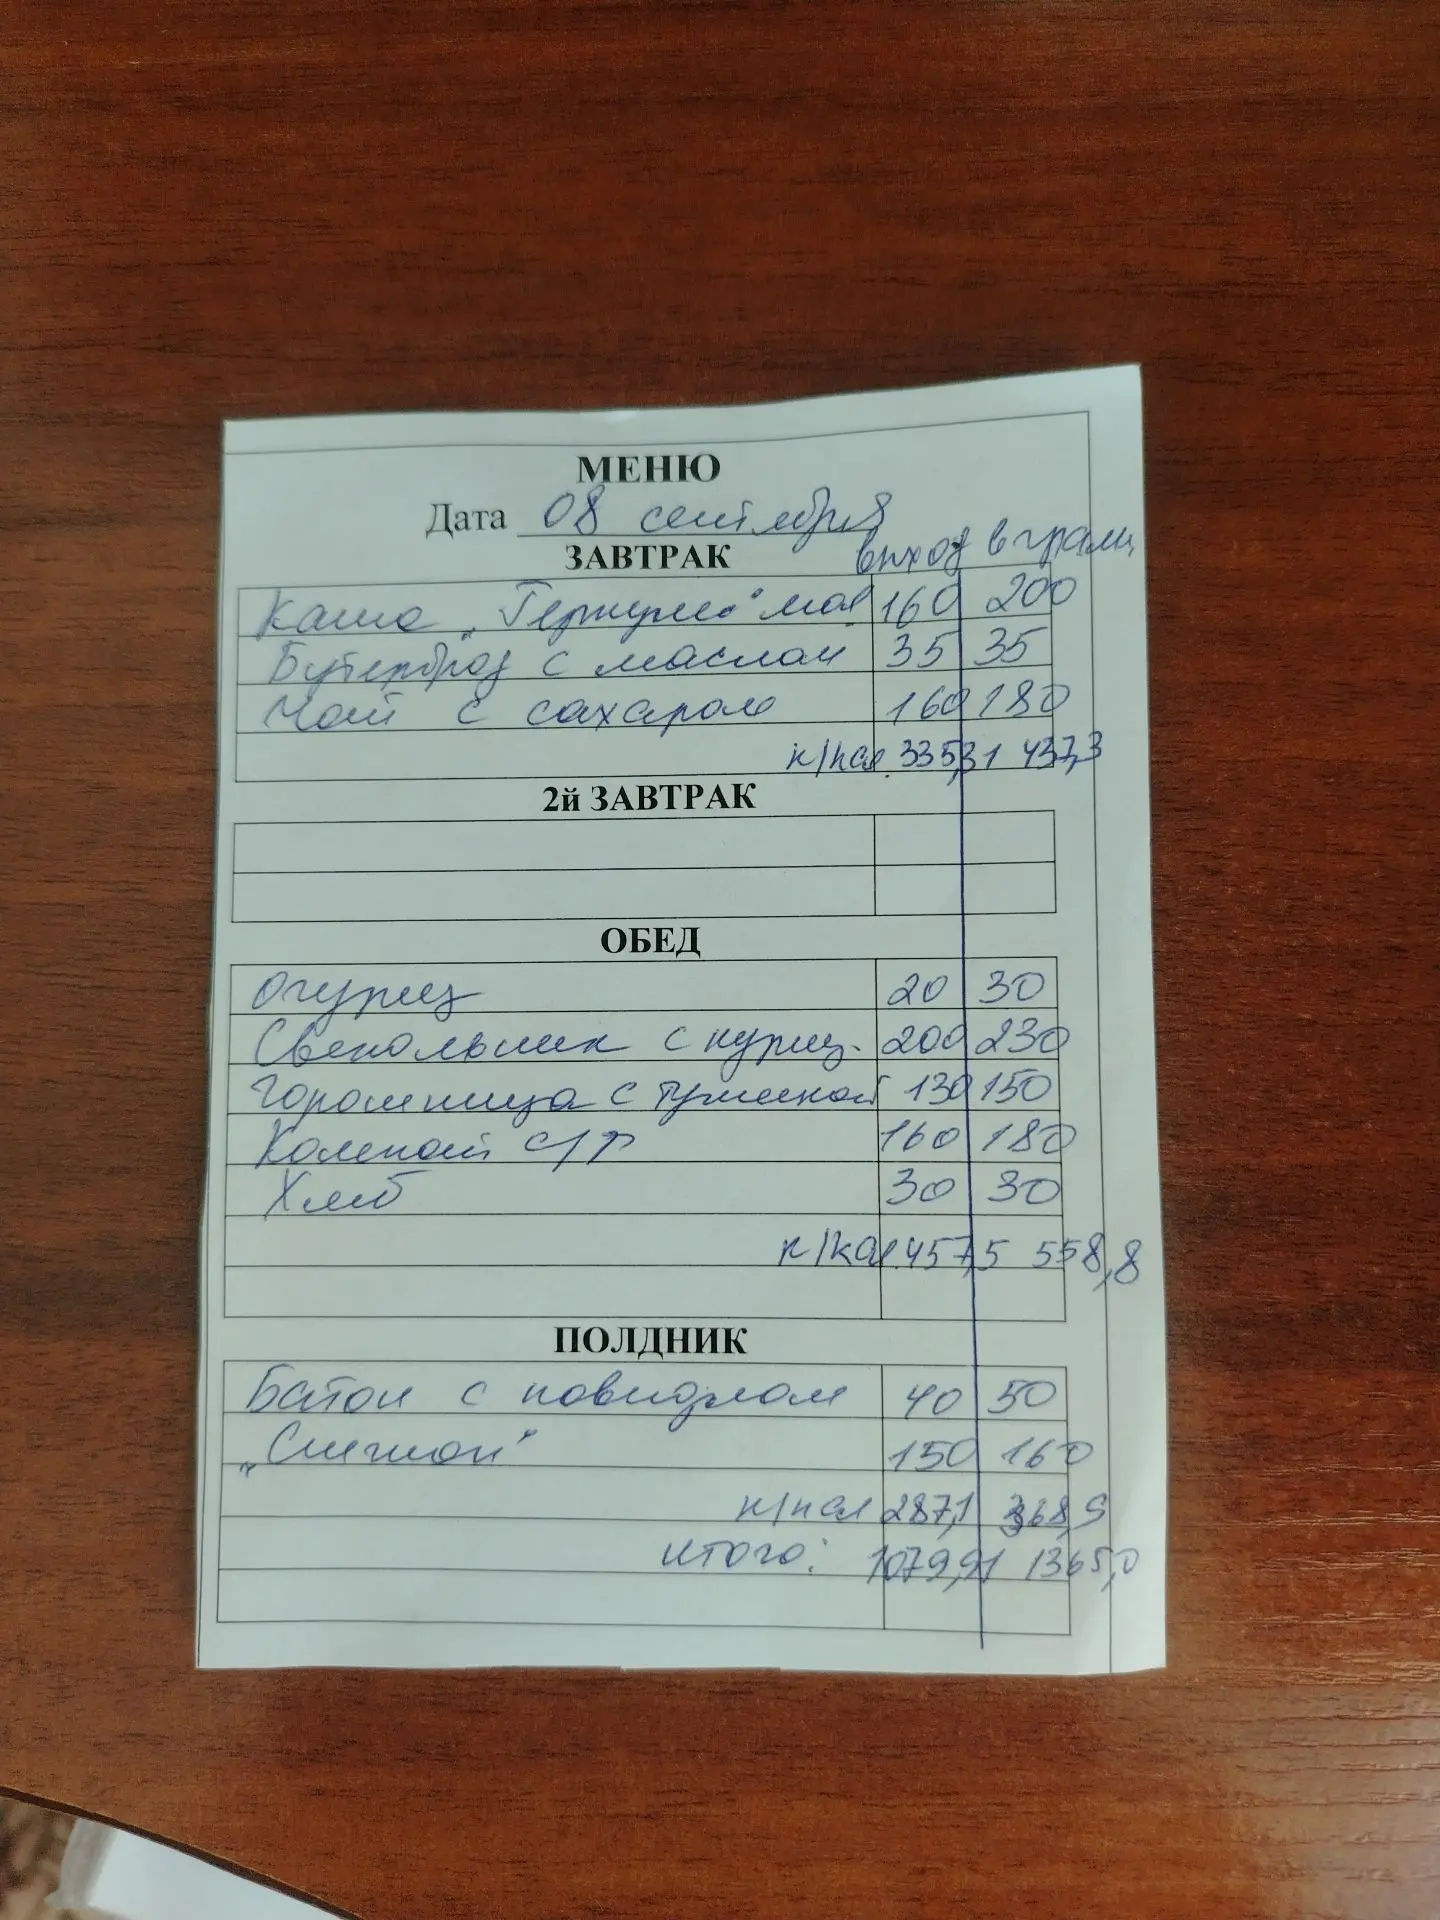 МЕНЮ
Дата 08 сентября
ЗАВТРАК выход в грамм
Каша "Геркулес" мол 160 200
Бутерброд с маслом 35 35
Чай с сахаром 160 180
к/кал 335,31 437,3
2й ЗАВТРАК
ОБЕД
Огурец 20 30
Свекольник с куриц. 200 230
Горошница с тушенкой 130 150
Компот с/ф 160 180
Хлеб 30 30
к/кал 457,5 558,8
ПОЛДНИК
Батон с повидлом 40 50
"Снежок" 150 160
к/кал 287,1 368,9
итого: 1079,91 1365,0